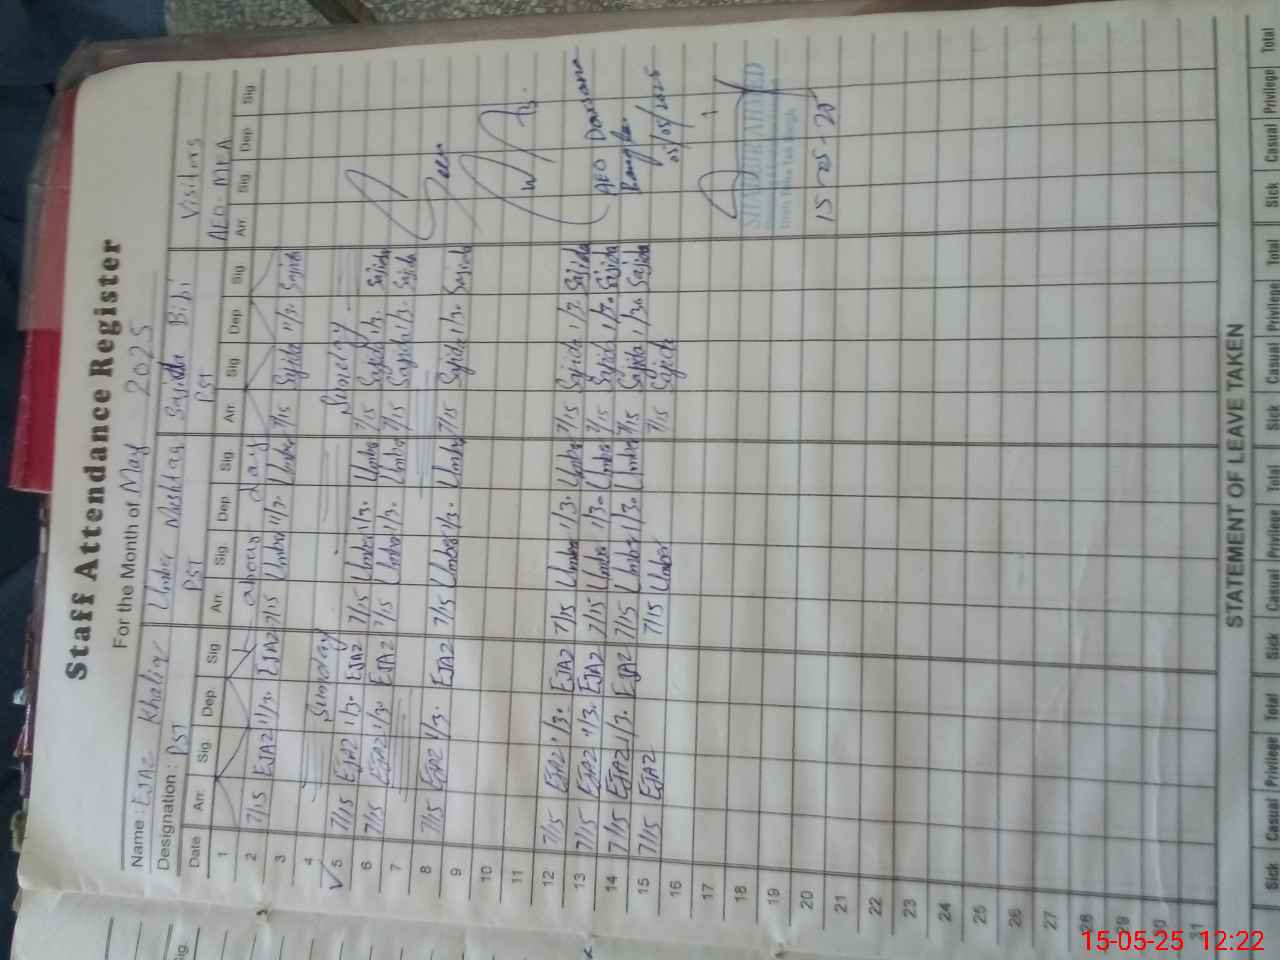 Staff Attendance Register
For the Month of May 2025
Name : EJAZ Khaliq Umber Mushtaq Sajida Bibi Visitors
Designation : PST PST PST AEO-MEA
Date Arr. Sig. Dep. Sig Arr. Sig. Dep. Sig. Arr. Sig Dep. Sig Arr. Sig. Dep. Sig
1 Labour day
2 7/15 EJAZ 11/30 EJAZ 7/15 Umber 11/30 Umber 7/15 Sajida 11/30 Sajida
3
4 Sunday Sunday
5 7/15 EJAZ 1/30 EJAZ 7/15 Umber 1/30 Umber 7/15 Sajida 1/30 Sajida
6 7/15 EJAZ 1/30 EJAZ 7/15 Umber 1/30 Umber 7/15 Sajida 1/30 Sajida
7
8 7/15 EJAZ 1/30 EJAZ 7/15 Umber 1/30 Umber 7/15 Sajida 1/30 Sajida
9
10
11
12 7/15 EJAZ 1/30 EJAZ 7/15 Umber 1/30 Umber 7/15 Sajida 1/30 Sajida
13 7/15 EJAZ 1/30 EJAZ 7/15 Umber 1/30 Umber 7/15 Sajida 1/30 Sajida
14 7/15 EJAZ 1/30 EJAZ 7/15 Umber 1/30 Umber 7/15 Sajida 1/30 Sajida
15 7/15 EJAZ 7/15 Umber 7/15 Sajida
16
17
18
19
20
21
22
23
24
25
26
27
28
29
30
31
Seen
AEO
05/05/2025
15-05-25
STATEMENT OF LEAVE TAKEN
Sick Casual Privilege Total Sick Casual Privilege Total Sick Casual Privilege Total Sick Casual Privilege Total
Sig
15-05-25 12:22